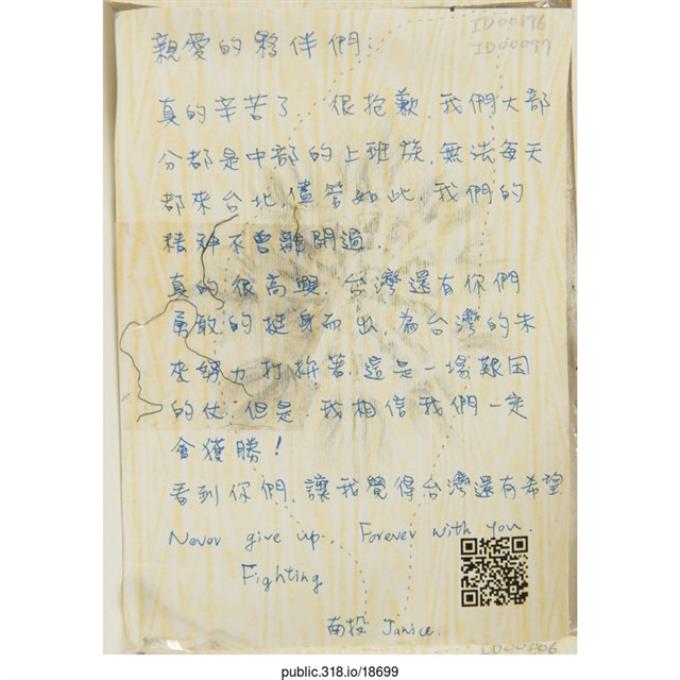 ID00196
ID00097
親愛的夥伴們：
真的辛苦了 很抱歉，我們大部
分都是中部的上班族，無法每天
都來台北，儘管如此，我們的
精神不曾離開過．
真的很高興，台灣還有你們
勇敢的挺身而出，為台灣的未
來努力打拚著，這是一場艱困
的仗，但是 我相信我們一定
會獲勝！
看到你們，讓我覺得台灣還有希望
Never give up. Forever with you.
Fighting
南投 Janice.
public.318.io/18699